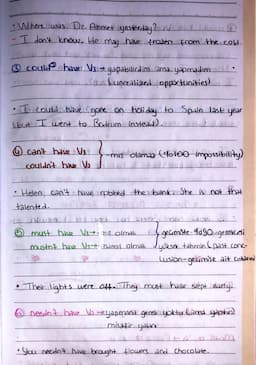 • Where was Dr. Ahmet yesterday?
- I don't know. He may have frozen from the cold.
③ could have V3 → yapabilirdim ama yapmadım
(unrealized opportunities)
• I could have gone on holiday to Spain last year
(but I went to Bodrum instead).
④ can't have V3
couldn't have V3 } -mış olamaz (%100 impossibility)
• Helen can't have robbed the bank. She is not that
talented.
⑤ must have V3 → mış olmalı
mustn't have V3 → mamış olmalı } geçmişte %90
yüksek tahmin (past conc-
lusion - geçmişe ait
• Their lights were off. They must have slept early.
⑥ needn't have V3 → yapmana gerek yoktu (ama yaptın)
• You needn't have brought flowers and chocolate.